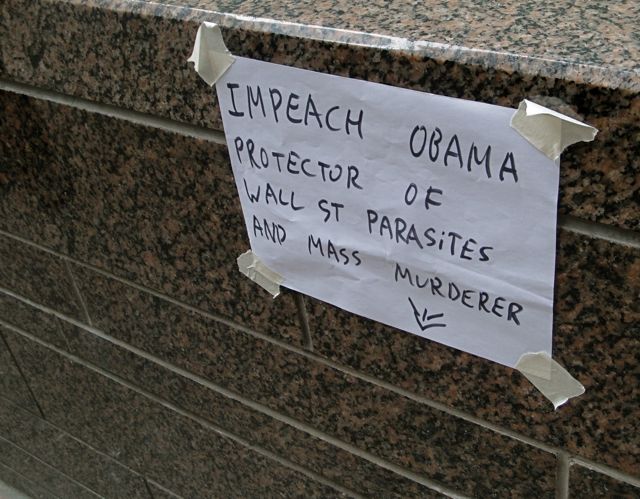 IMPEACH OBAMA
PROTECTOR OF
WALL ST PARASiTES
AND MASS MURDERER